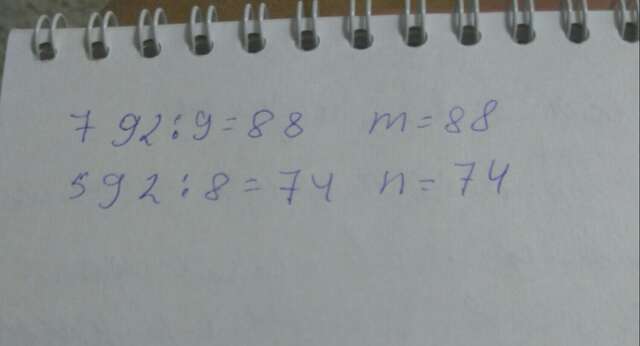 792:9=88 m=88
592:8=74 n=74